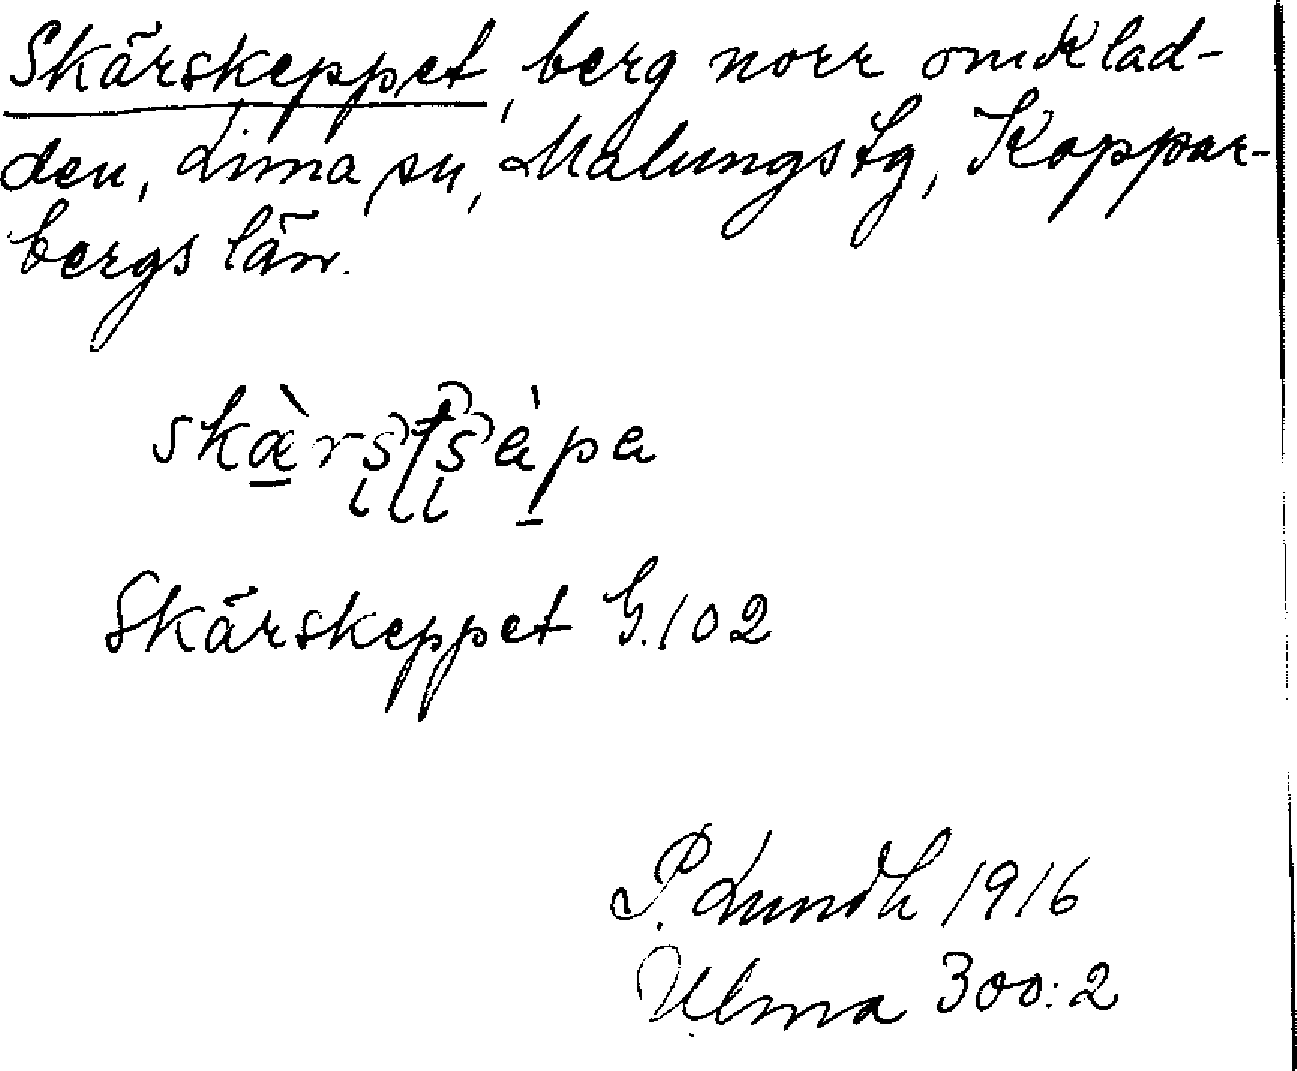 Skärskeppet, berg norr om Klad-
den, Lima sn, Malungs tg, Koppar-
bergs län.
skæ̀rstsèpa
Skärskeppet G. 102
P. Lundh 1916
Ulma 300:2